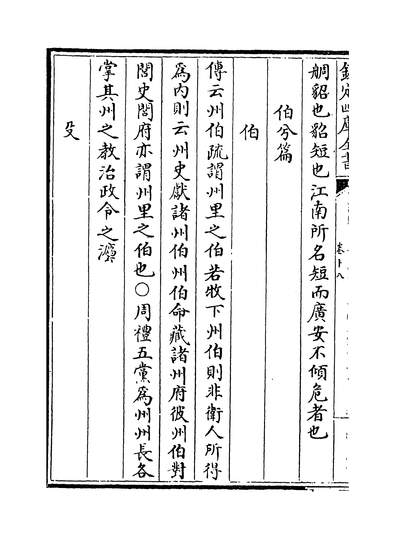 欽定四庫全書
卷十八
鵃貂也貂短也江南所名短而廣安不傾危者也
伯兮篇
伯
傳云州伯疏謂州里之伯若牧下州伯則非衛人所得
為内則云州史獻諸州伯州伯命藏諸州府彼州伯對
閭史閭府亦謂州里之伯也○周禮五黨為州州長各
掌其州之教治政令之灋
殳